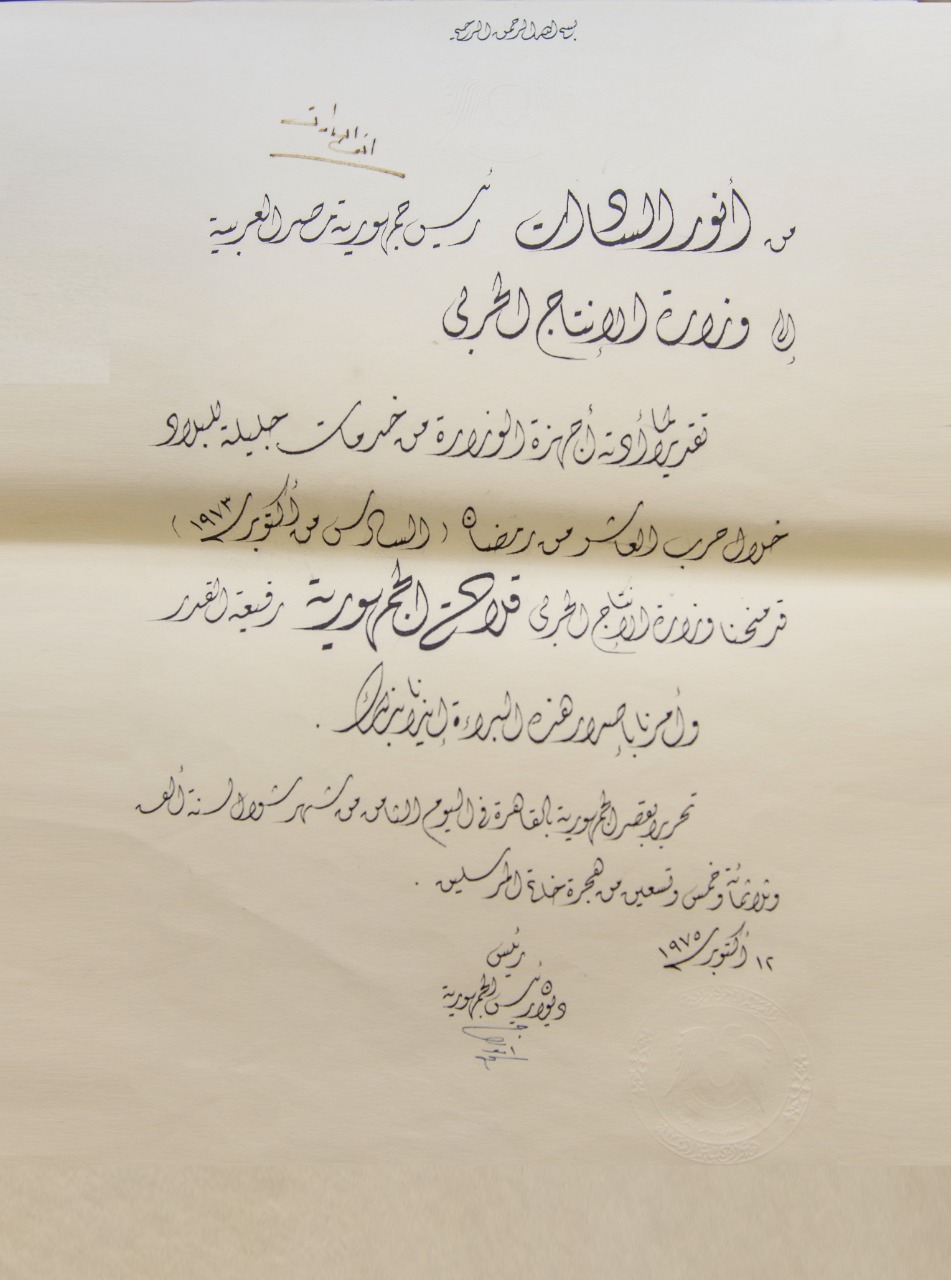 بسم الله الرحمن الرحيم
أنور السادات
من أنور السادات رئيس جمهورية مصر العربية
إلى وزارة الإنتاج الحربى
تقديرا لما أدته أجهزة الوزارة من خدمات جليلة للبلاد
خلال حرب العاشر من رمضان ( السادس من أكتوبر ١٩٧٣ )
قد منحنا وزارة الإنتاج الحربى قلادة الجمهورية رفيعة القدر
وأمرنا بإصدار هذه البراءة إيذانا بذلك .
تحريرا بقصر الجمهورية بالقاهرة فى اليوم الثامن من شهر شوال سنة ألف
وثلاثمائة وخمس وتسعين من هجرة خاتم المرسلين .
١٢ أكتوبر ١٩٧٥
رئيس
ديوان رئيس الجمهورية